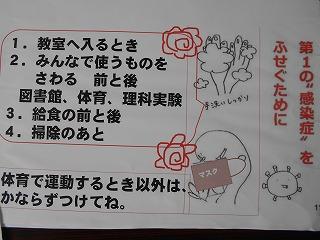 第1の“感染症”を
ふせぐために
1．教室へ入るとき
2．みんなで使うものを
さわる　前と後
図書館、体育、理科実験
3．給食の前と後
4．掃除のあと
手洗いしっかり
マスク
体育で運動するとき以外は、
かならずつけてね。